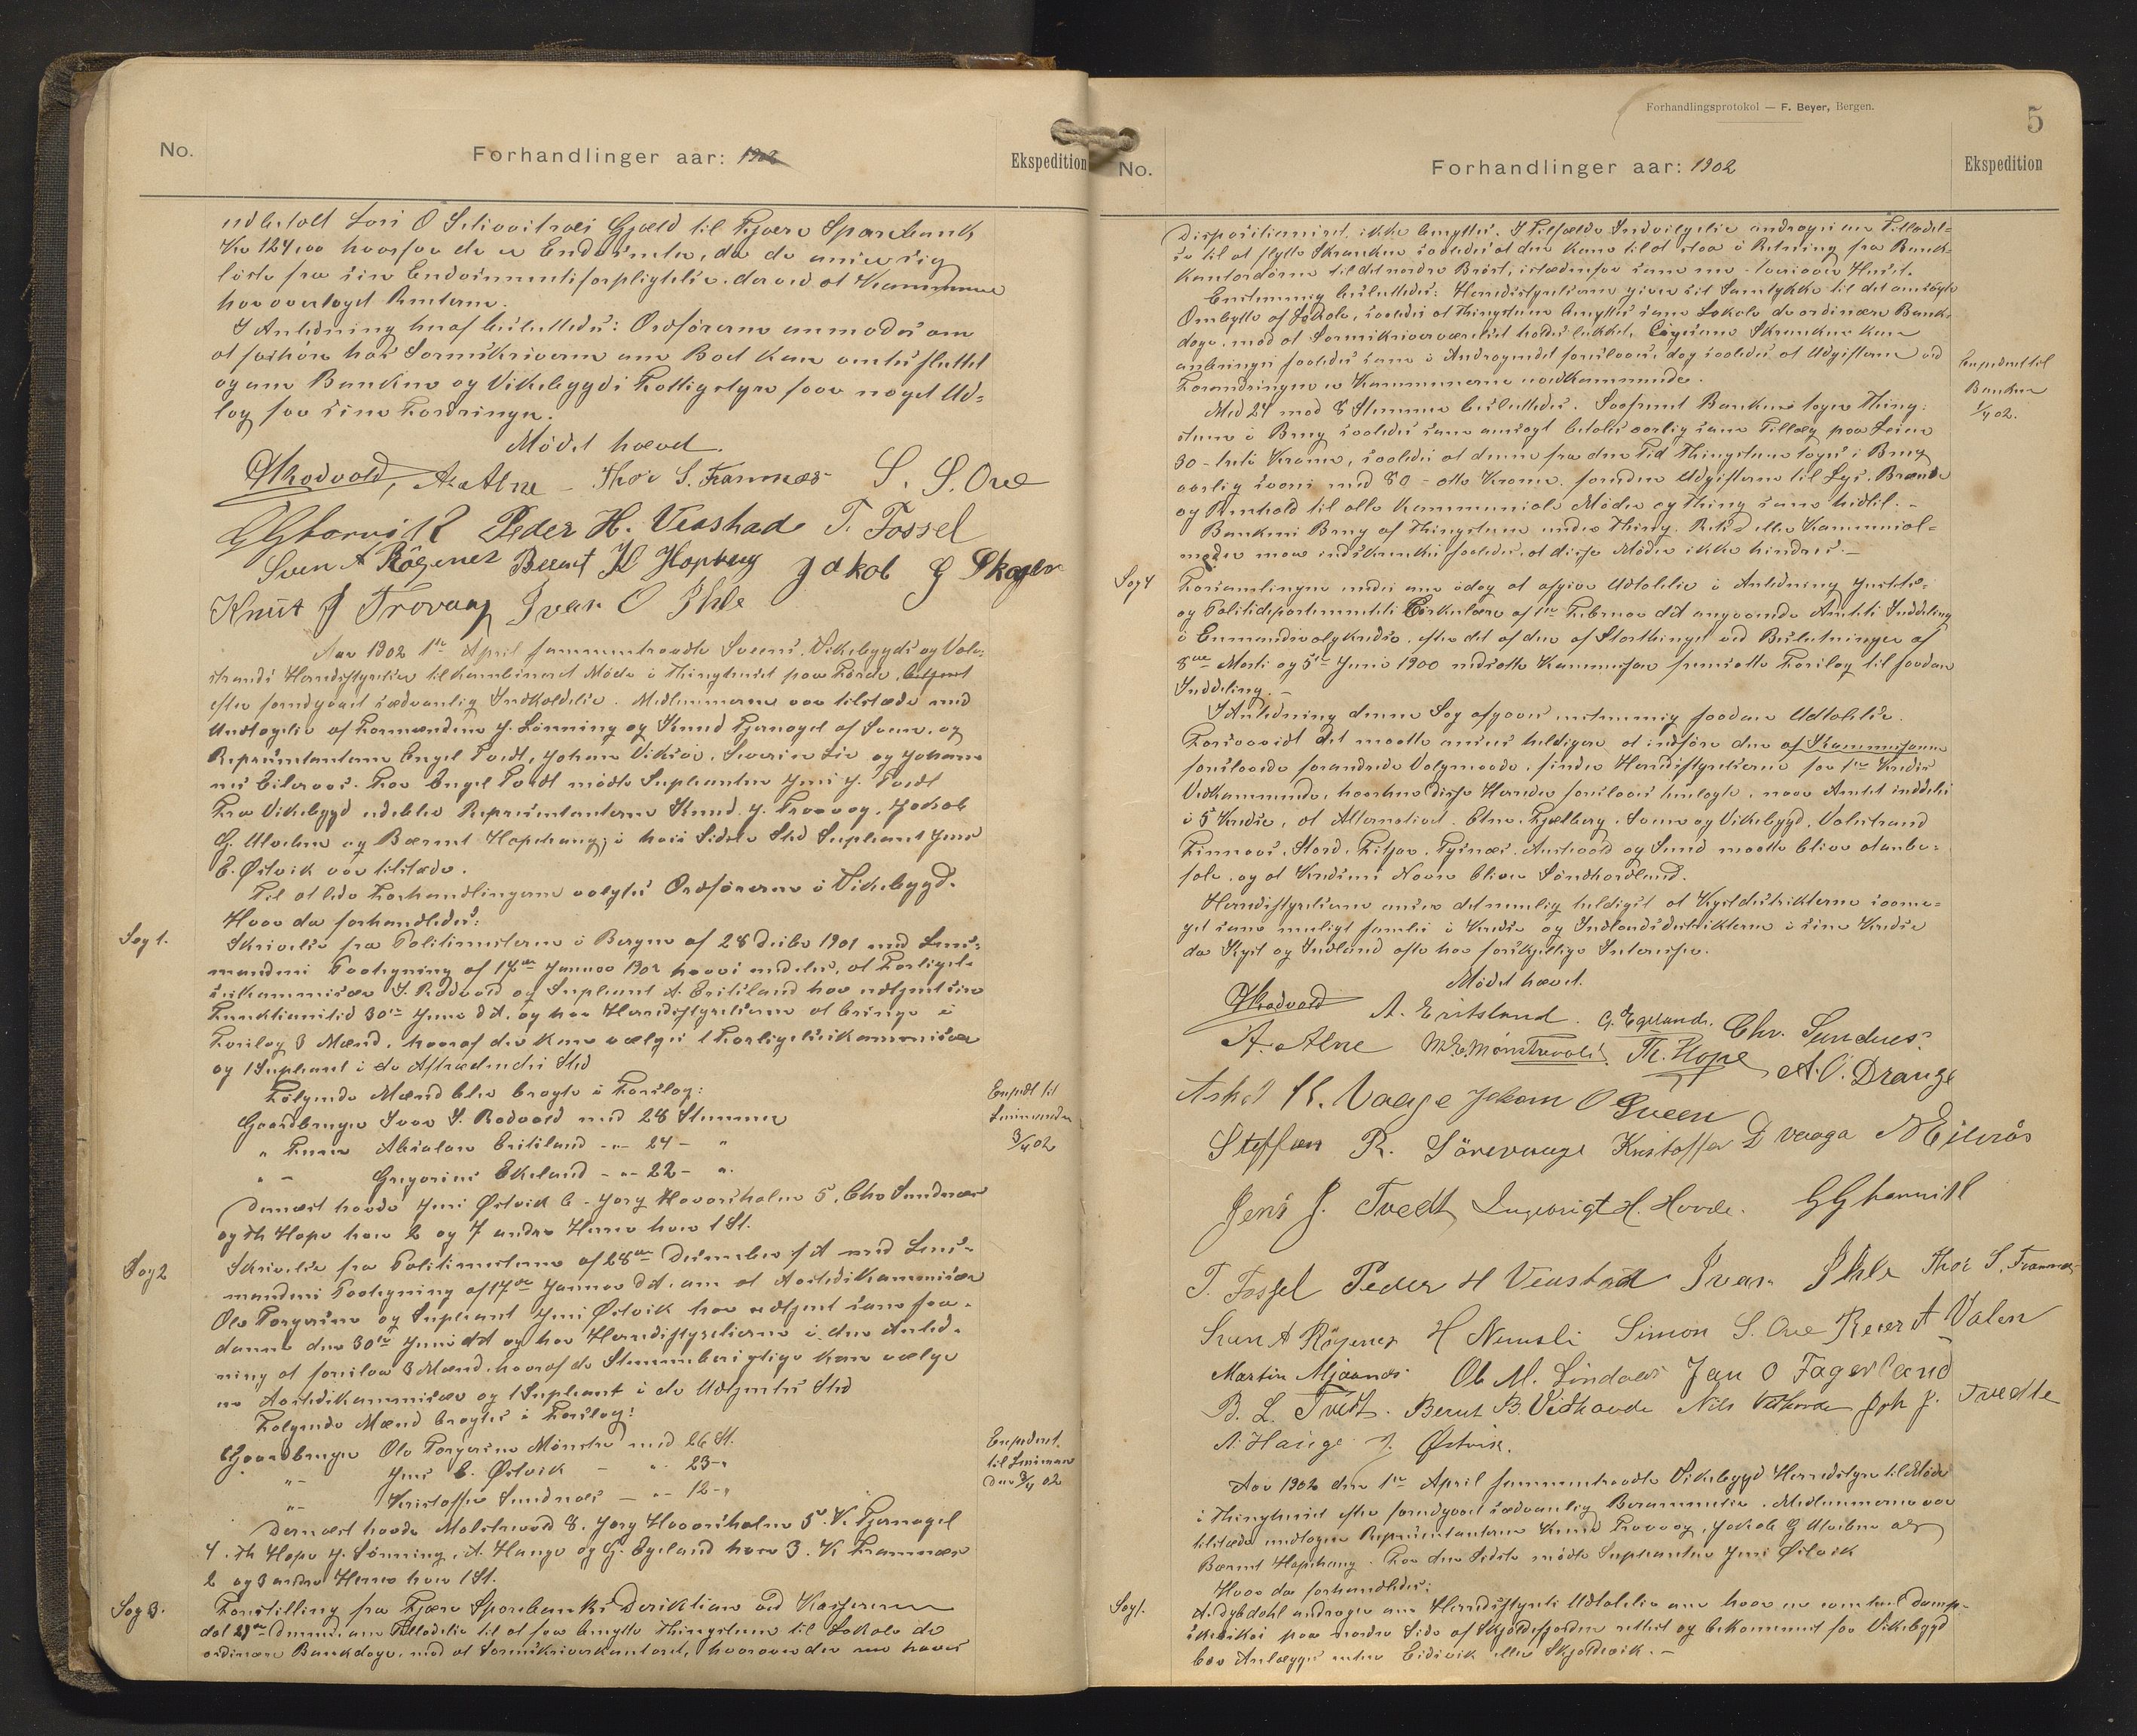 No.
Forhandlinger aar: 1902
Ekspedition
udbetalt Lars O Gjæld til Fjære Sparebank
Kr 124,00 hvorfor de er Endosenter, da de anser sig
løste fra sin Endosementsforpligtelse, derved at Kommunen
har overtaget Renterne.
I Anledning heraf besluttedes: Ordføreren anmodes om
at forhøre hos Sorenskriveren om Boet kan ansees sluttet
og om Banken og Vikebygds Fattigstyre faar noget Ud-
læg for sine Fordringer.
Mødet hævet.
A. Alne Thor S. Framnes S. S. Ove
Peder H. Veastad T. Fossel
Sven A Røgenes Berent H Hopkaug Jakob G
Knut J Trovaag Ivar O Ihle
Aar 1902 1ste April sammentraadte Sveens, Vikebygds og Vale-
strands Herredsstyrelser til kombineret Møde i Thinghuset paa Førde,
efter forudgaaet sædvanlig Indkaldelse. Medlemmerne var tilstæde med
Undtagelse af Formændene J. Lønning og Knud Tjernagel af Sveen, og
Repræsentanterne Engel Tvedt, Johan Vikse, Severin Lie og Johan-
nes Eileraas. For Engel Tvedt mødte Suppleanten Jens J. Tvedt
Fra Vikebygd udeblev Repræsentanterne Knud J. Trovaag, Jakob
G. og Bærent Hopkaug; i hvis Sidstes Sted Supleant Jens
E. Østvik var tilstæde.
Til at lede Forhandlingerne valgtes Ordføreren i Vikebygd.
Hvor da forhandledes:
Sag 1.
Skrivelse fra Politimesteren i Bergen af 28 Decbr 1901 med Lens-
mandens Paategning af 17de Januar 1902 hvori meddeles, at Forligel-
seskommissær I. Rødvold og Supleant A. Eritsland har udtjent sin
Funktionstid 30te Juni d.A. og har Herredsstyrelserne at bringe i
Forslag 3 Mænd, hvoraf der kan vælges 1 Forligelseskommissær
og 1 Supleant i de Aftrædendes Sted
Følgende Mænd blev bragte i Forslag:
Gaardbruger Ivar I. Rødvold med 28 Stemmer
" Absalon Eritsland - " - 24 - "
" - Gregorius Ekeland - " - 22 - "
Expedt til
Lensmanden
3/4 02
Dernæst havde Jens Østvik 6 - Jørg Havørsholm 5, Chr Sundnæs
og Th Hope hver 2 og 7 andre Herrer hver 1 St.
Sag 2
Skrivelse fra Politimesteren af 28de December f.A. med Lens-
mandens Paategning af 17de Januar d.A. om at
Ole Torgersen og Supleant Jens Østvik har udtjent som saa-
danne den 30te Juni d.A. og har Herredsstyrelserne i den Anled-
ning at foreslaa 3 Mænd, hvoraf de Stemmeberigtige kan vælge
og 1 Supleant i de Udtjentes Sted
Følgende Mænd bragtes i Forslag:
Gaardbruger Ole Torgersen Mønstre med 26 St.
" - Jens E. Østvik - " 23 - "
" - Kristoffer Sundnæs - " - 12 - "
Expederet
til Lensman
den 3/4 02
Dernæst havde 8, Jørg Havørsholm 5, K. Tjernagel
4, Th Hope, J. Lønning, A. Hauge og G. Egeland hver 3, K Framnæs
2 og 3 andre Herrer hver 1 St.
Sag 3.
Forestilling fra Fjære Sparebanks Direktion ved Kassereren
dat 29de om Tilladelse til at faa benytte Thingstuen til Lokale de
ordinære Bankdage, mod at Sorenskriverkontoret, hvorover der nu haves
Forhandlingsprotokol — F. Beyer, Bergen.
5
No.
Forhandlinger aar: 1902
Ekspedition
Dispositionsret, ikke benyttes. I Tilfælde Indvilgelse andrages om Tilladel-
se til at flytte Skranken saaledes at den kan til at staa i Retning fra Bank-
kontordøren til det nordre Bryst, istedenfor som nu - tversover Huset.
Enstemmig besluttedes: Herredsstyrelserne giver sit Samtykke til det ansøgte
Ombytte af Lokale, saaledes at Thingstuen benyttes som Lokale de ordinære Bank-
dage, mod at Sorenskriverværelset holdes lukket. Ligesom Skranken kan
anbringes saaledes som i Andragendet foreslaaet, dog saaledes at Udgifterne ved
Forandringen er Kommunerne uvedkommende.
Med 24 mod 8 Stemmer besluttedes: Saafremt Banken tager Thing-
stuen i Brug saaledes som ansøgt betales aarlig som Tillæg paa Leien
30 - treti Kroner, saaledes at denne fra den Tid Thingstuen tages i Brug
aarlig svares med 80 - otti Kroner, foruden Udgifterne til Lys, Brænde
og Renhold til alle Kommunale Møder og Thing som hidtil. -
Bankens Brug af Thingstuen under Thing, Ret eller Kommunal-
møder maa indskrænkes saaledes, at disse Møder ikke hindres. -
Expederet til
Banken
1/4 02.
Sag 4
Forsamlingen enedes om idag at afgive Udtalelse i Anledning Justits-
og Politidepartementets Cirkulære af 1ste Februar d.A. angaaende Amtets Inddeling
i Enmandsvalgkredse, efter det af den af Storthinget ved Beslutninger af
8de Marts og 5te Juni 1900 nedsatte Kommission fremsatte Forslag til saadan
Inddeling. -
I Anledning denne Sag afgaves enstemmig saadan Udtalelse.
Forsaavidt det maatte ansees heldigere at indføre den af Kommissionen
foreslaaede forandrede Valgmaade, finder Herredsstyrelserne for 1ste Kreds
Vedkommende, hvorhen disse Herreder foreslaaes henlagte, naar Amtet inddeles
i 5 Kredse, at Alternativet: Etne, Fjelberg, Sveen og Vikebygd, Valestrand
Finnaas, Stord, Fitjar, Tysnæs, Austevold og Sund maatte blive at anbe-
fale, og at Kredsens Navn bliver Søndhordland.
Herredsstyrelserne anser det nemlig heldigst at Kystdistrikterne saame-
get som muligt samles i Kredse og Indlandsdistrikterne i sine Kredse
da Kyst og Indland ofte har forskjellige Interesser.
Mødet hævet.
A. Eritsland. G. Egeland. Chr. Sundnes.
A. Alne M. E. Mønstrevold. Th. Hope A. O. Drange
Asket K. Vaage Johan O Sveen
Steffen R. Sørevaage Kristoffer D vaaga N Eilerås
Jens J. Tvedt Ingebrigt H. Hovde.
T. Fossel Peder H Veastad Ivar Ihle Thor S. Framnes
Sven A Røgenes H Nernsli Simon S. Ove Reier A Valen
Martin Mjaanes Ole M. Lindaas Jan O Fagerland
B. L. Tvedt. Berent B. Vidhovde Nils Vidhovde Joh J. Tvedte
A. Hauge J. Østvik.
Aar 1902 den 1ste April sammentraadte Vikebygd Herredsstyre til Møde
i Thinghuset efter forudgaaet sædvanlig Berammelse. Medlemmerne var
tilstæde undtagen Repræsentanterne Knud Trovaag, Jakob G og
Bærent Hopkaug. For den Sidste mødte Supleanten Jens Østvik
Hvor da forhandledes:
Sag 1.
A. Dybdahl andrager om Herredsstyrets Udtalelse om hvor en eventuel Damp-
skibskai paa nordre Side af Skjoldefjorden rettest og bekvemmest for Vikebygd
bør Anlægges enten Eidsvik eller Skjoldevik. -